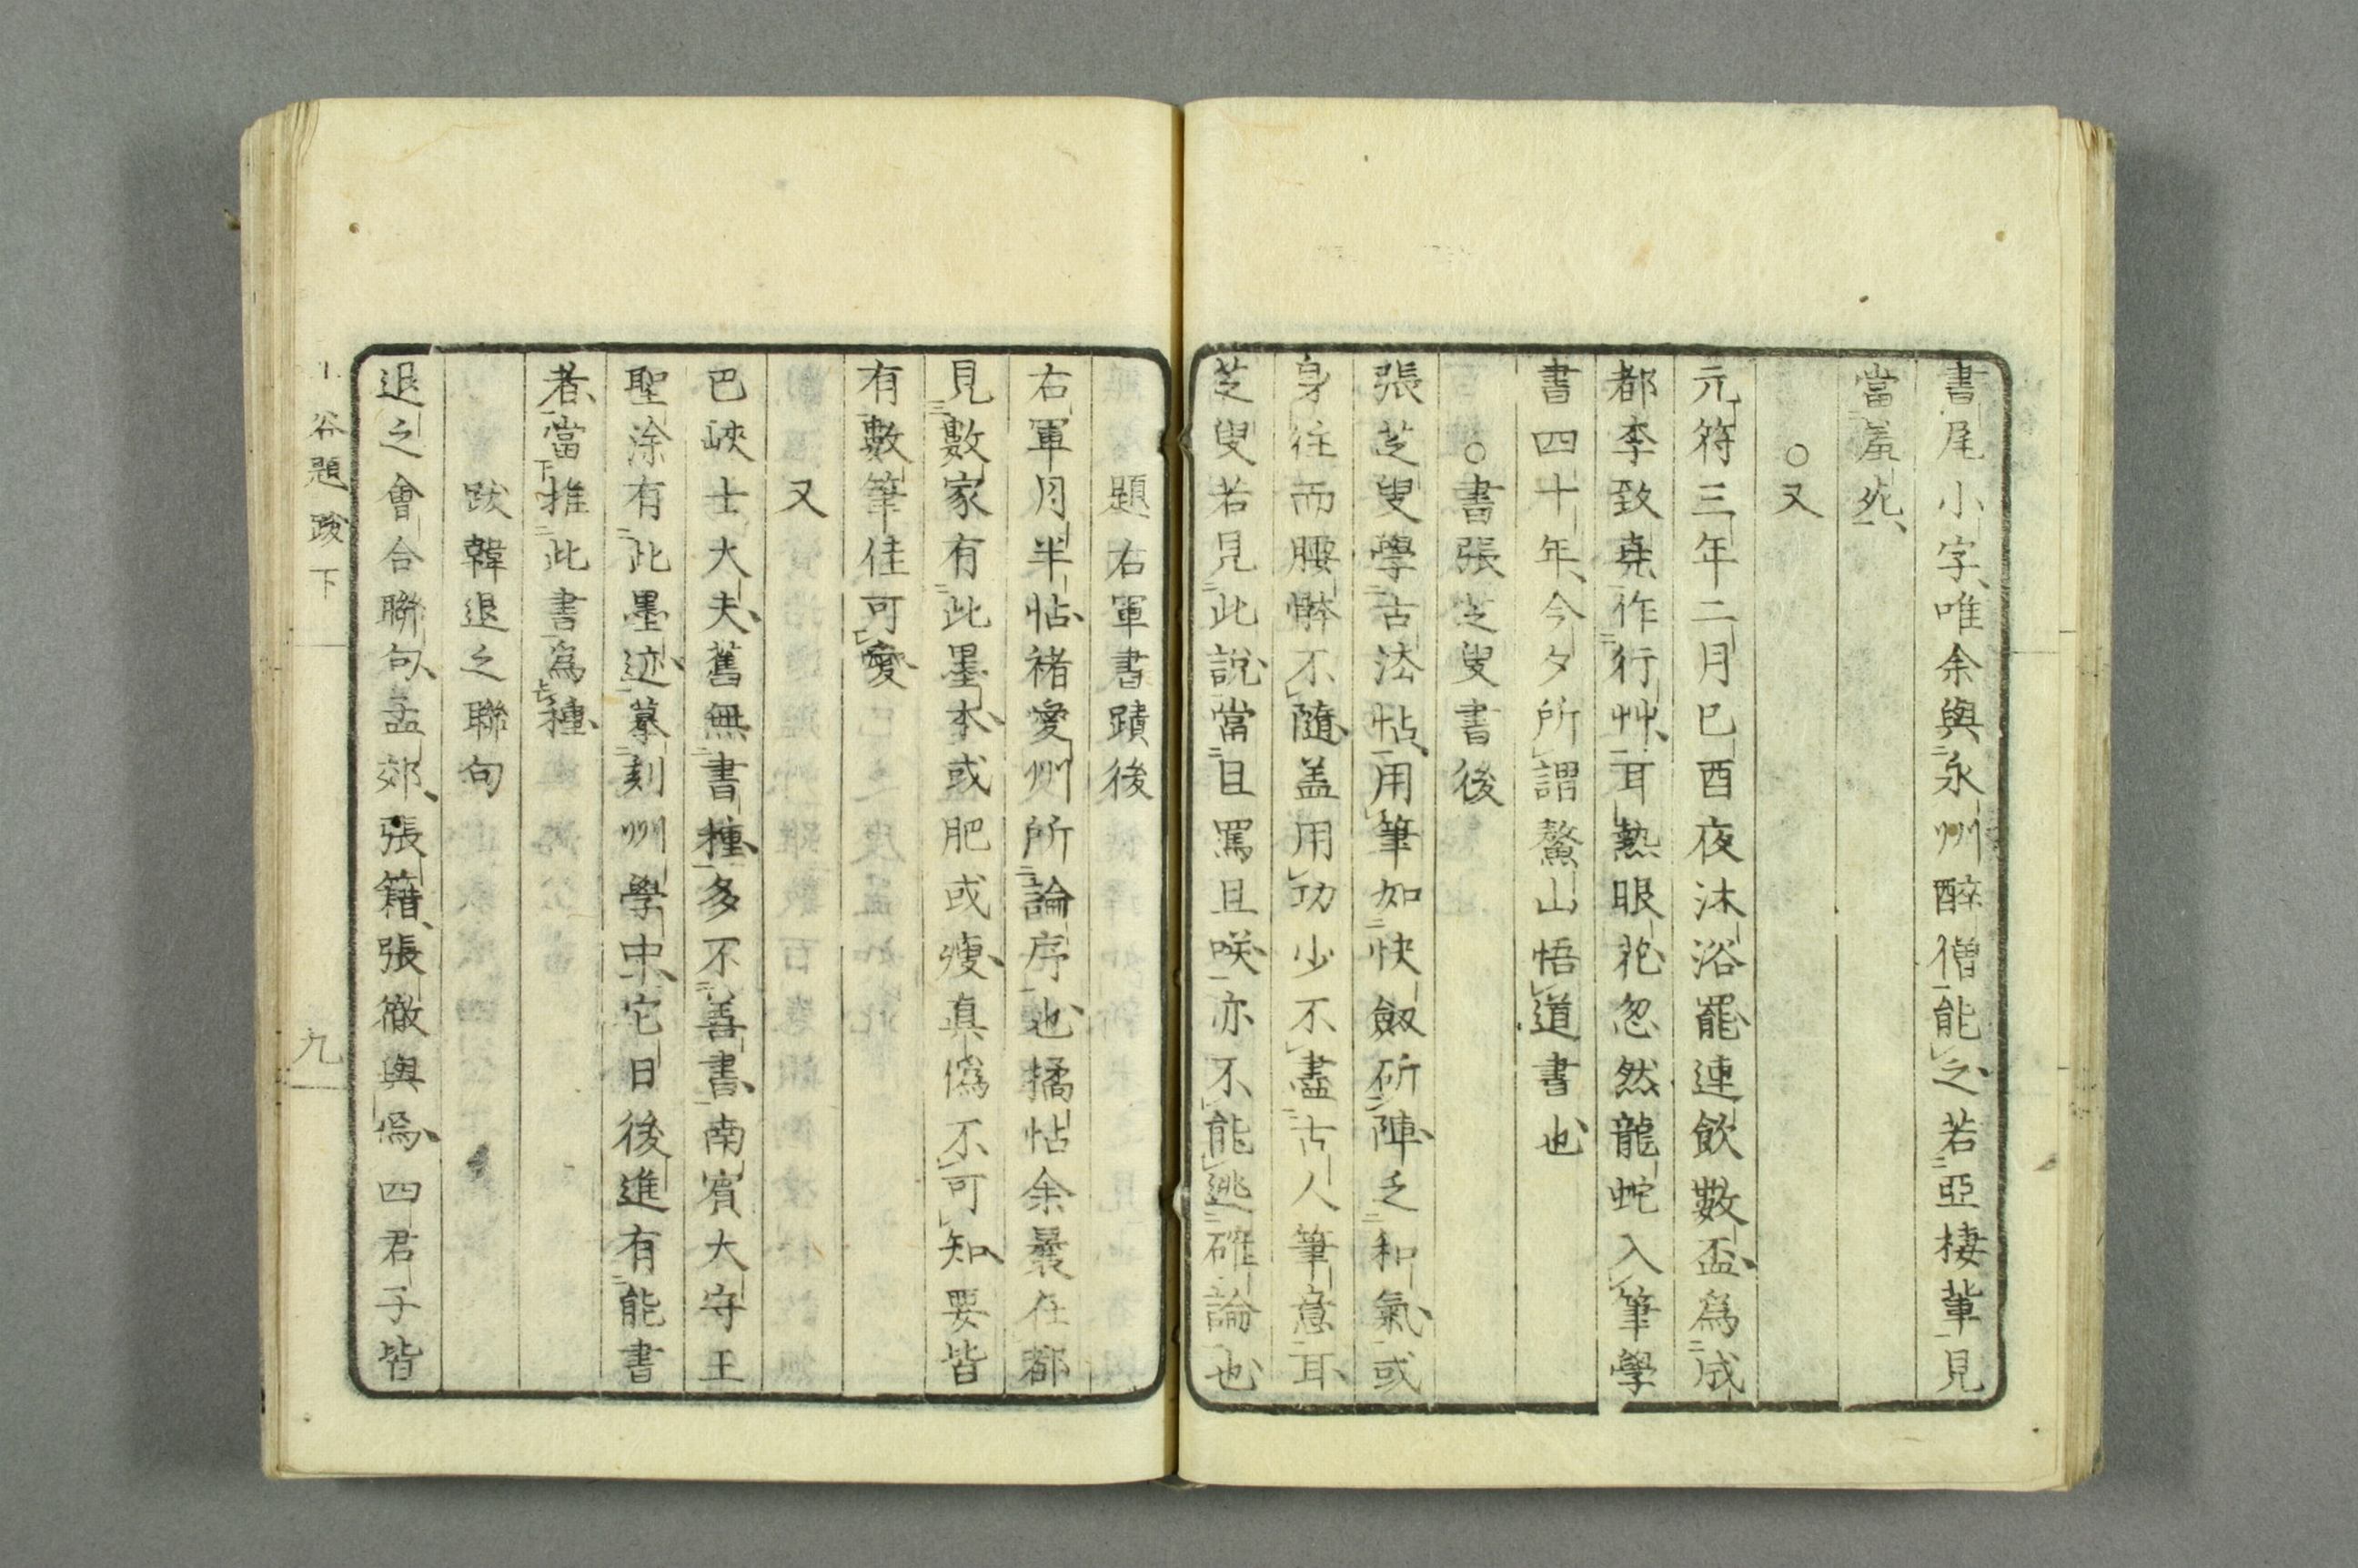 書尾小字唯余與永州醉僧能之若亞棲軰見
當羞死
○又
元符三年二月己酉夜沐浴罷連飲數盃爲成
都李致尭作行艸耳熱眼花忽然龍蛇入筆學
書四十年今夕所謂鰲山悟道書也
○書張芝叟書後
張芝叟學古法帖用筆如快劔斫陣乏和氣或
身往而腰髀不隨盖用功少不盡古人筆意耳
芝叟若見此說當且罵且咲亦不能逃確論也
題右軍書蹟後
右軍月半帖褚愛州所論序也橘帖余曩在都
見數家有此墨本或肥或瘦真僞不可知要皆
有數筆佳可愛
又
巴峽士大夫舊無書種多不善書南賓大守王
聖涂有此墨迹摹刻州學中它日後進有能書
者當推此書爲種
跋韓退之聯句
退之會合聯句孟郊張籍張徹與焉四君子皆
谷題跋下
九